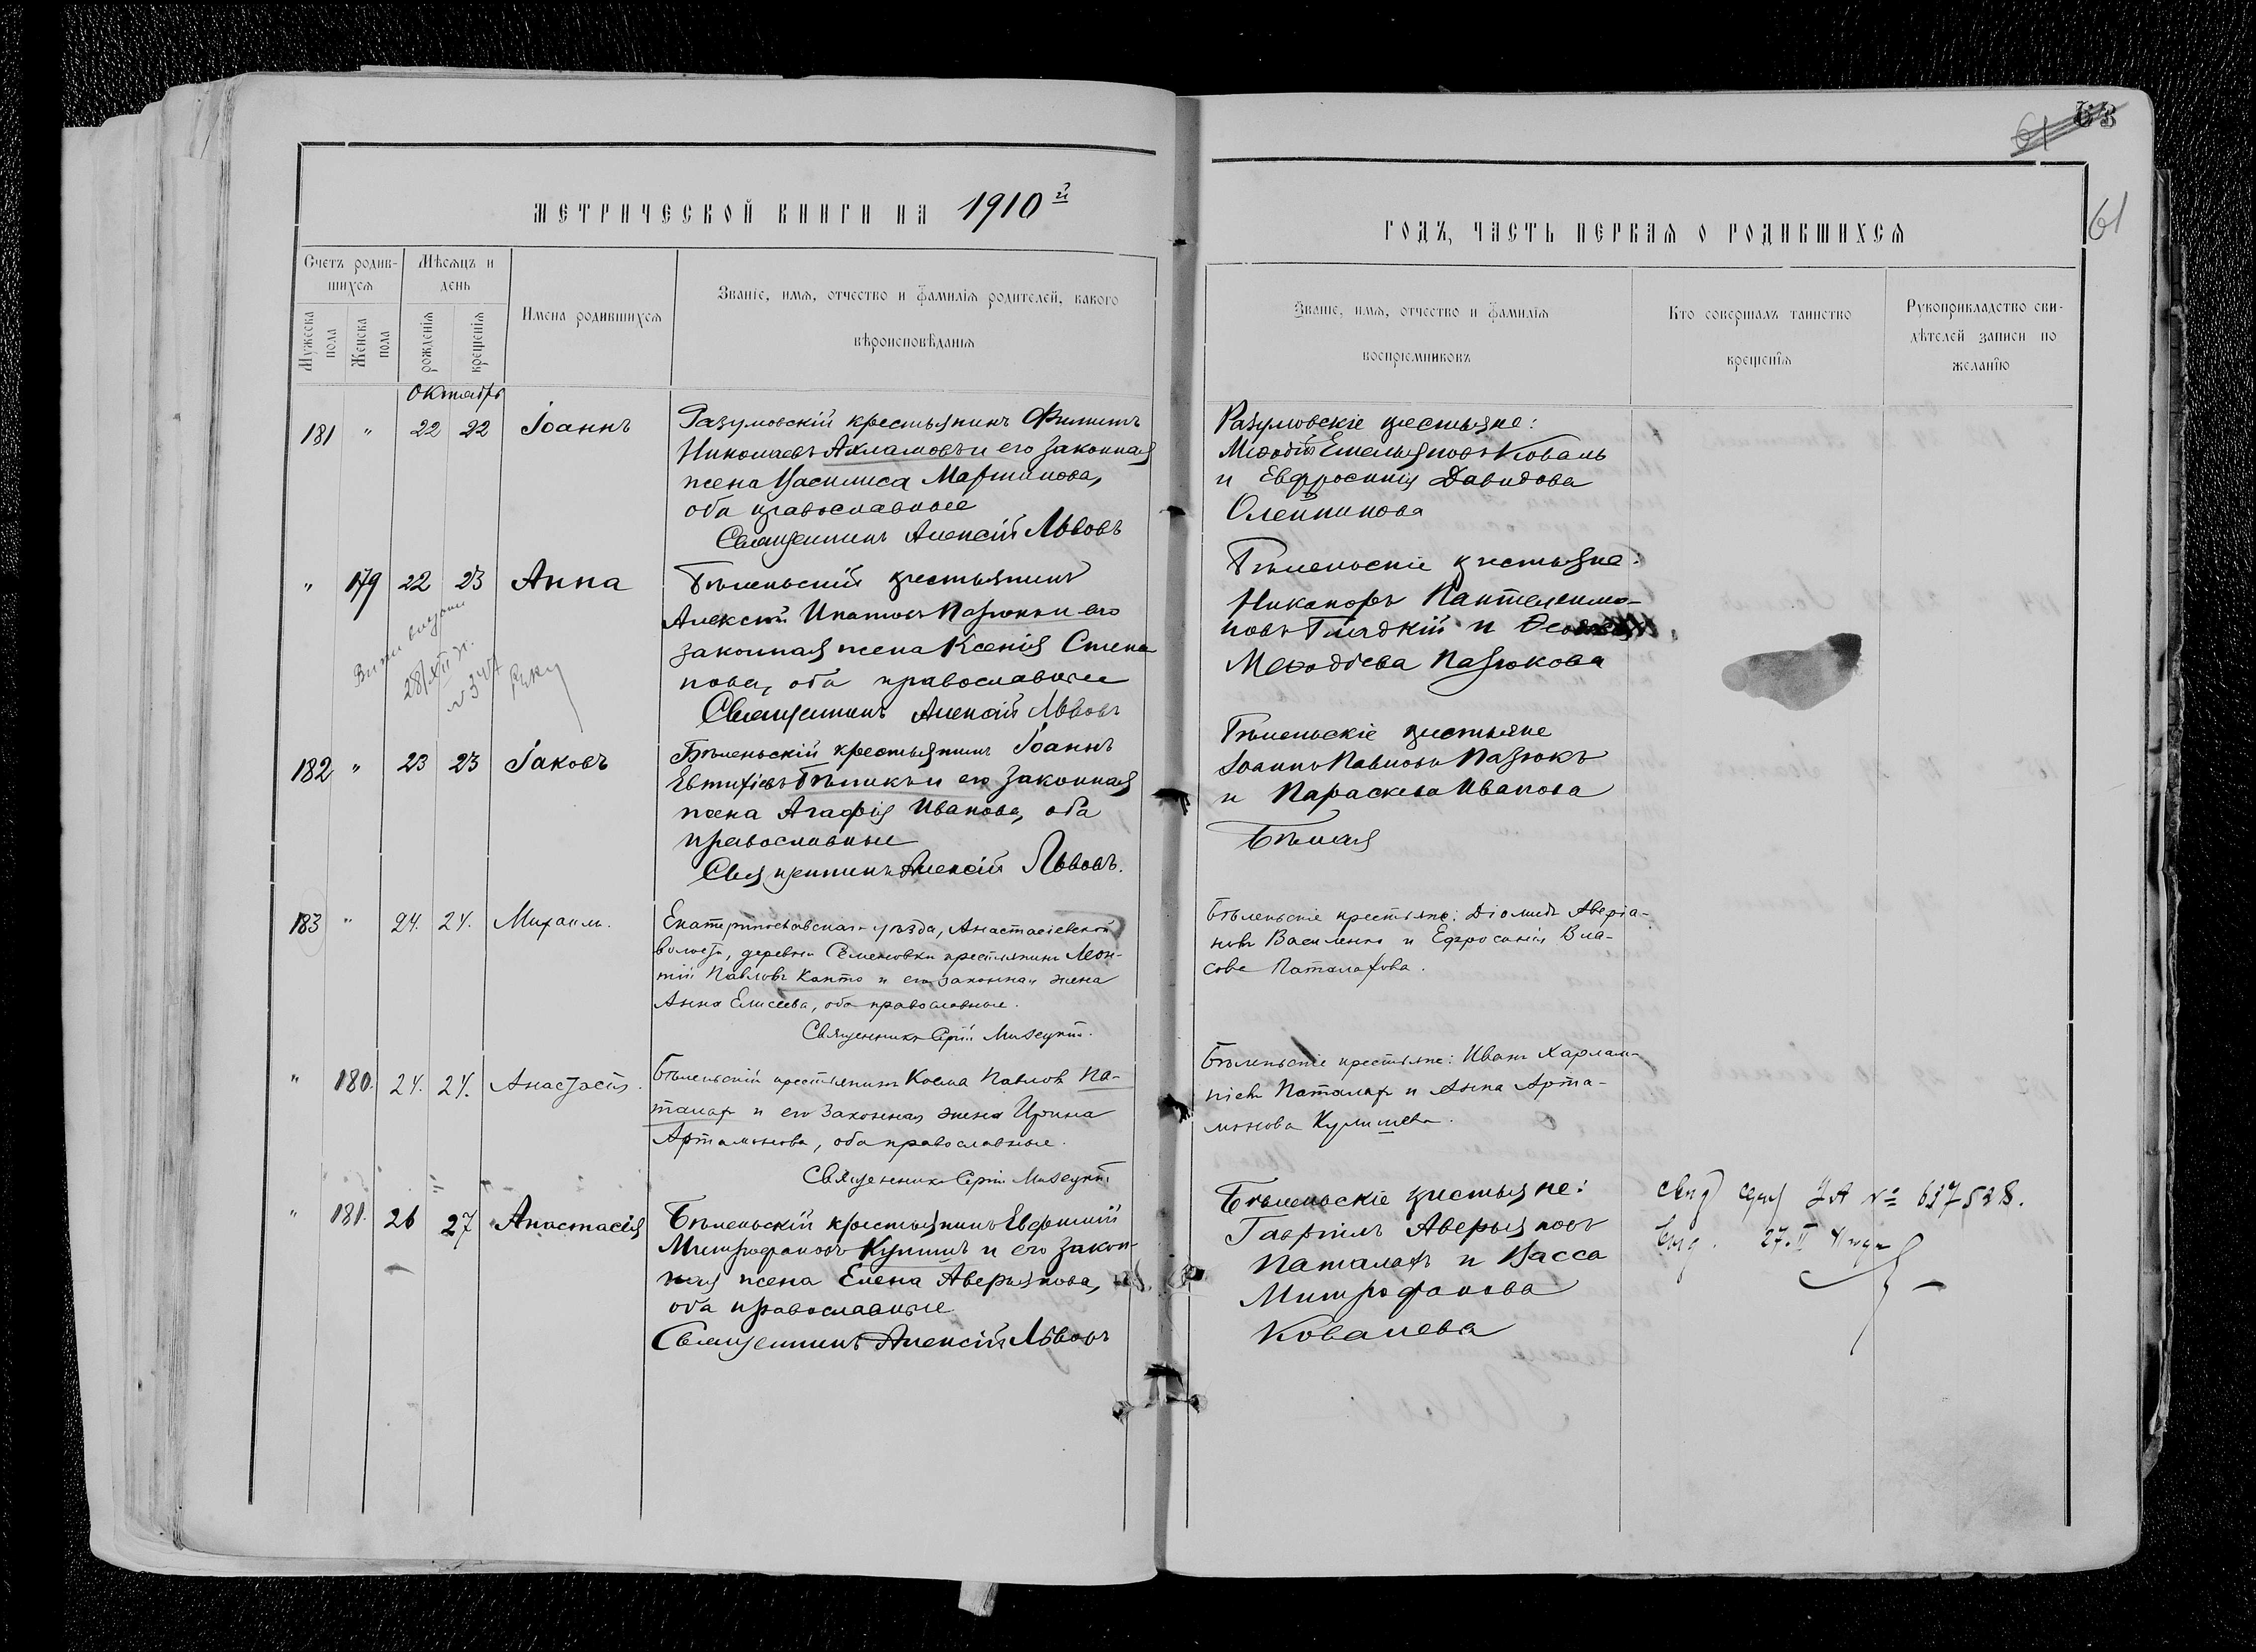 63
61
61
МЕТРИЧЕСКОЙ КНИГИ НА 1910й
ГОДЪ, ЧАСТЬ ПЕРВАЯ О РОДИВШИХСЯ
Счетъ родив-
шихся
Мужеска
пола
Женска
пола
Мѣсяцъ и
день
рожденія
крещенія
Имена родившихся
Званіе, имя, отчество и фамилія родителей, какого
вѣроисповѣданія
Званіе, имя, отчество и фамилія
воспріемниковъ
Кто совершалъ таинство
крещенія
Рукоприкладство сви-
дѣтелей записи по
желанію
Октябрь
181 " 22 22 Іоаннъ
Разумовскій крестьянинъ Филиппъ
Николаевъ Ахламовъ и его законная
жена Василиса Мартинова,
оба православные
Священникъ Алексій Львовъ
Разумовскіе крестьяне:
Меѳодій Емельяновъ Коваль
и Евфросинія Давидова
Олейникова
" 179 22 23 Анна
Бѣленьскій крестьянинъ
Алексій Ипатовъ Пазюкъ и его
законная жена Ксенія Степа
нова, оба православные
Священникъ Алексій Львовъ
Бѣленьскіе крестьяне:
Никаноръ Пантелеимо-
новъ Гладкій и
Меѳодіева Пазюкова
182 " 23 23 Іаковъ
Бѣленьскій крестьянинъ Іоаннъ
Евтихіевъ Бѣликъ и его законная
жена Агафія Иванова, оба
православные
Священникъ Алексій Львовъ.
Бѣленьскіе крестьяне
Іоаннъ Павловъ Пазюкъ
и Параскева Иванова
Бѣлая
183 " 24. 24. Михаилъ.
Екатеринославскаго уѣзда, Анастасіевской
волости, деревни Семеновки крестьянинъ Леон-
тій Павловъ Копто и его законная жена
Анна Елисеева, оба православные.
Священникъ Сергій Мизецкій.
Бѣленьскіе крестьяне: Діомидъ Аверіа-
новъ Василенко и Ефросинія Вла-
сова Паталахова.
" 180. 24. 24. Анастасія.
Бѣленьскій крестьянинъ Косма Павловъ Па-
талахъ и его законная жена Ирина
Артамонова, оба православные.
Священникъ Сергій Мизецкій
Бѣленьскіе крестьяне: Иванъ Харлам-
піевъ Паталахъ и Анна Арта-
монова Кулишева.
" 181. 26 27 Анастасія
Бѣленьскій крестьянинъ Евфимій
Митрофановъ Кулишъ и его закон-
ная жена Елена Аверьянова,
оба православные
Священникъ Алексій Львовъ
Бѣленьскіе крестьяне:
Гавріилъ Аверьяновъ
Паталахъ и Васса
Митрофанова
Ковалева
№ 637528.
27.II